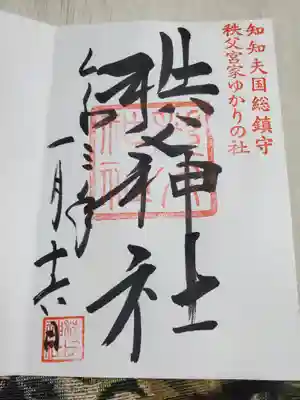 知知夫国総鎮守
秩父宮家ゆかりの社
秩父神社
令和三年
一月十六日